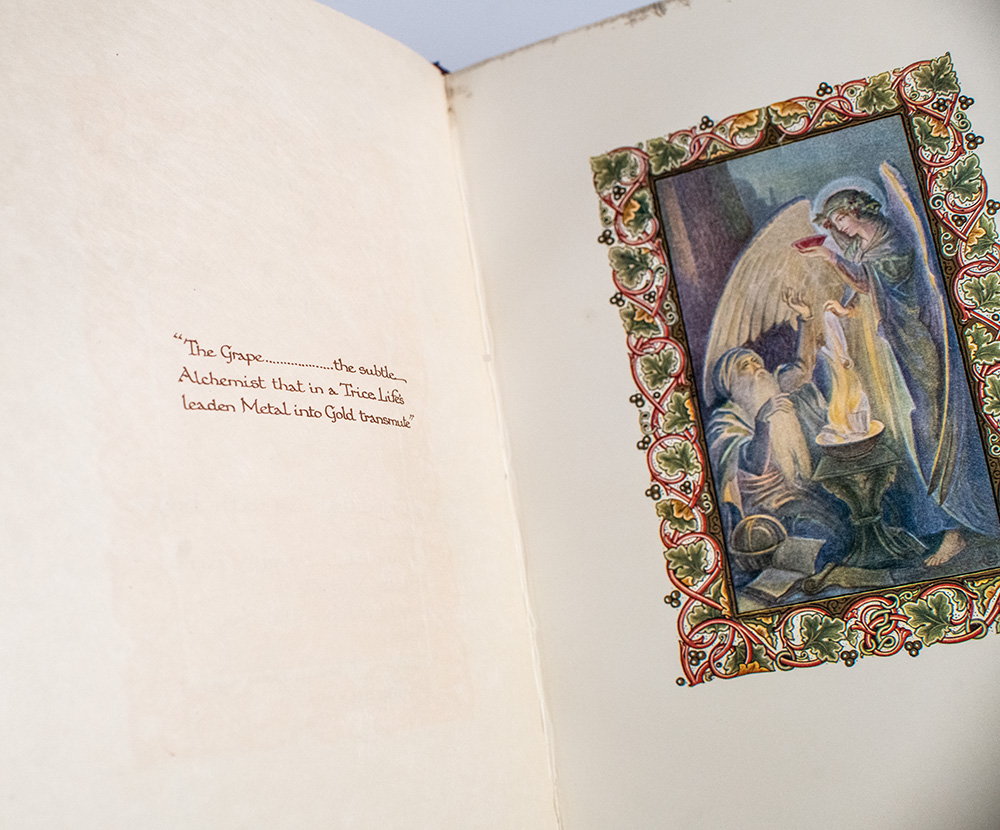 “The Grape...................the subtle
Alchemist that in a Trice Life's
leaden Metal into Gold transmute”